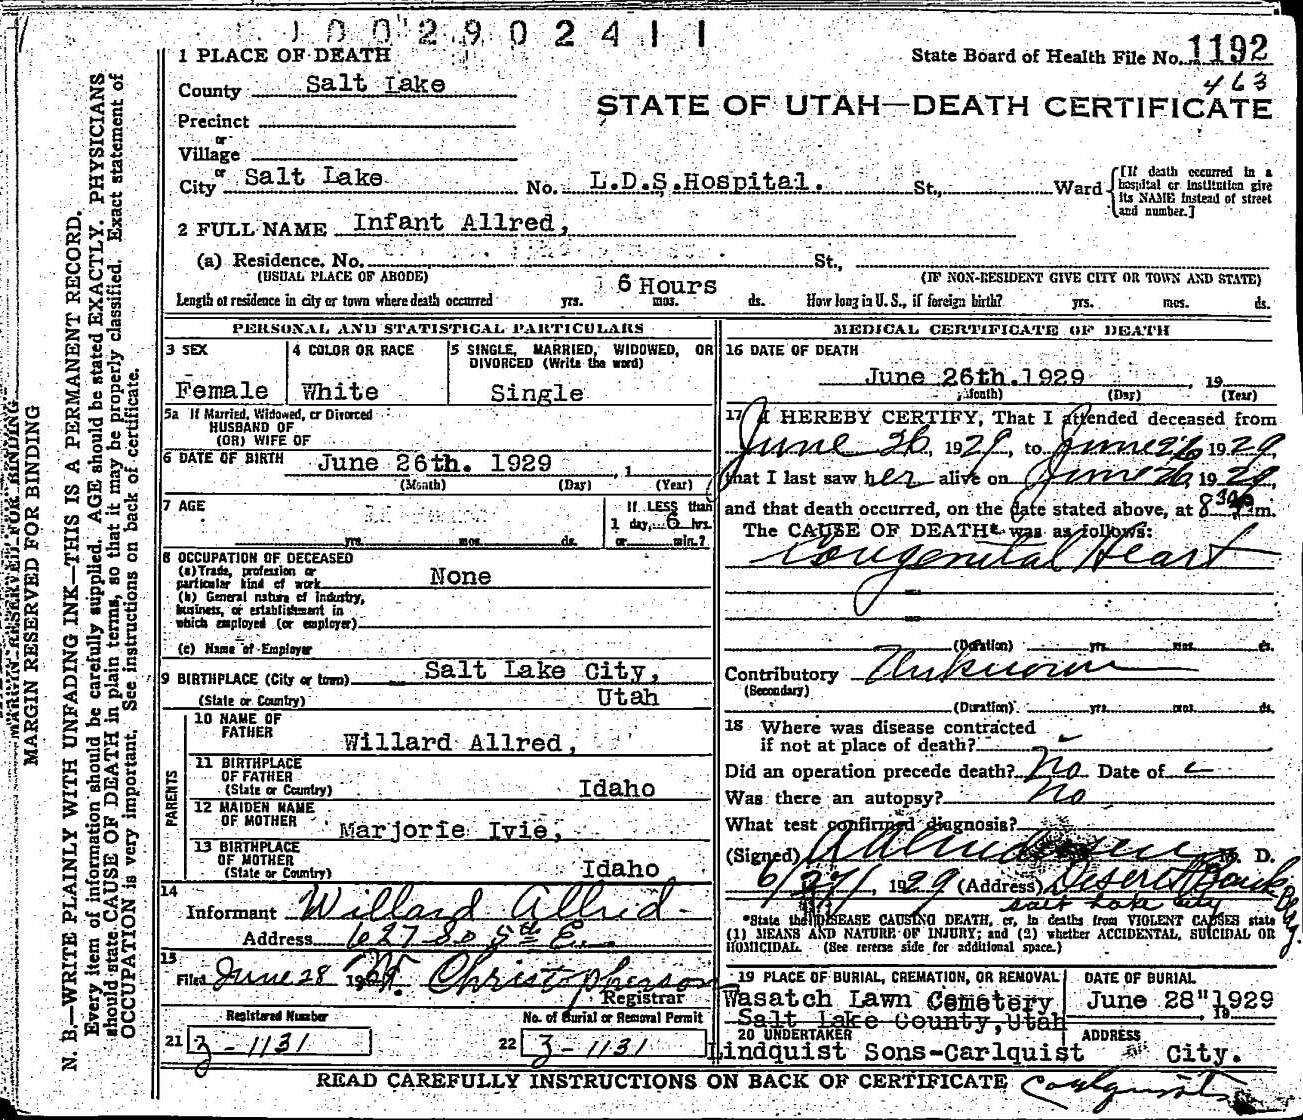 1002902411
1 PLACE OF DEATH
State Board of Health File No. 1192
463
County Salt Lake
STATE OF UTAH—DEATH CERTIFICATE
Precinct
or
Village
or
City Salt Lake No. L.D.S.Hospital. St., Ward
[If death occurred in a hospital or institution give its NAME instead of street and number.]
2 FULL NAME Infant Allred,
(a) Residence. No. St.,
(USUAL PLACE OF ABODE) (IF NON-RESIDENT GIVE CITY OR TOWN AND STATE)
6 Hours
Length of residence in city or town where death occurred yrs. mos. ds. How long in U. S., if foreign birth? yrs. mos. ds.
PERSONAL AND STATISTICAL PARTICULARS
3 SEX
Female
4 COLOR OR RACE
White
5 SINGLE, MARRIED, WIDOWED, OR
DIVORCED (Write the word)
Single
5a If Married, Widowed, or Divorced
HUSBAND OF
(OR) WIFE OF
6 DATE OF BIRTH June 26th. 1929 , 1
(Month) (Day) (Year)
7 AGE
yrs. mos. ds.
If LESS than
1 day, 6 hrs.
or min.?
8 OCCUPATION OF DECEASED
(a) Trade, profession or
particular kind of work None
(b) General nature of industry,
business, or establishment in
which employed (or employer)
(c) Name of Employer
9 BIRTHPLACE (City or town) Salt Lake City,
(State or Country) Utah
PARENTS
10 NAME OF
FATHER Willard Allred,
11 BIRTHPLACE
OF FATHER
(State or Country) Idaho
12 MAIDEN NAME
OF MOTHER Marjorie Ivie,
13 BIRTHPLACE
OF MOTHER
(State or Country) Idaho
14
Informant Willard Allred
Address 627 So 5th E.
15
Filed June 28 19 Christopherson
Registrar
Registered Number No. of Burial or Removal Permit
21 3-1131 22 3-1131
MEDICAL CERTIFICATE OF DEATH
16 DATE OF DEATH
June 26th.1929 , 19
(Month) (Day) (Year)
17 I HEREBY CERTIFY, That I attended deceased from
June 26, 1929, to June 26 1929
that I last saw her alive on June 26 1929,
and that death occurred, on the date stated above, at 8 30 p.m.
The CAUSE OF DEATH* was as follows:
Congenital Heart
(Duration) yrs. mos. ds.
Contributory Unknown
(Secondary)
(Duration) yrs. mos. ds.
18 Where was disease contracted
if not at place of death? -
Did an operation precede death? No Date of
Was there an autopsy? No
What test confirmed diagnosis?
(Signed) M. D.
6/27/, 1929 (Address) Deseret Bank Bldg.
Salt Lake City
*State the DISEASE CAUSING DEATH, or, in deaths from VIOLENT CAUSES state
(1) MEANS AND NATURE OF INJURY; and (2) whether ACCIDENTAL, SUICIDAL OR
HOMICIDAL. (See reverse side for additional space.)
19 PLACE OF BURIAL, CREMATION, OR REMOVAL
Wasatch Lawn Cemetery
Salt Lake County, Utah
DATE OF BURIAL
June 28" 1929
, 19
20 UNDERTAKER
Lindquist Sons-Carlquist
ADDRESS
City.
READ CAREFULLY INSTRUCTIONS ON BACK OF CERTIFICATE
MARGIN RESERVED FOR BINDING
MARGIN RESERVED FOR BINDING
N. B.—WRITE PLAINLY WITH UNFADING INK—THIS IS A PERMANENT RECORD.
Every item of information should be carefully supplied. AGE should be stated EXACTLY. PHYSICIANS
should state CAUSE OF DEATH in plain terms, so that it may be properly classified. Exact statement of
OCCUPATION is very important. See instructions on back of certificate.